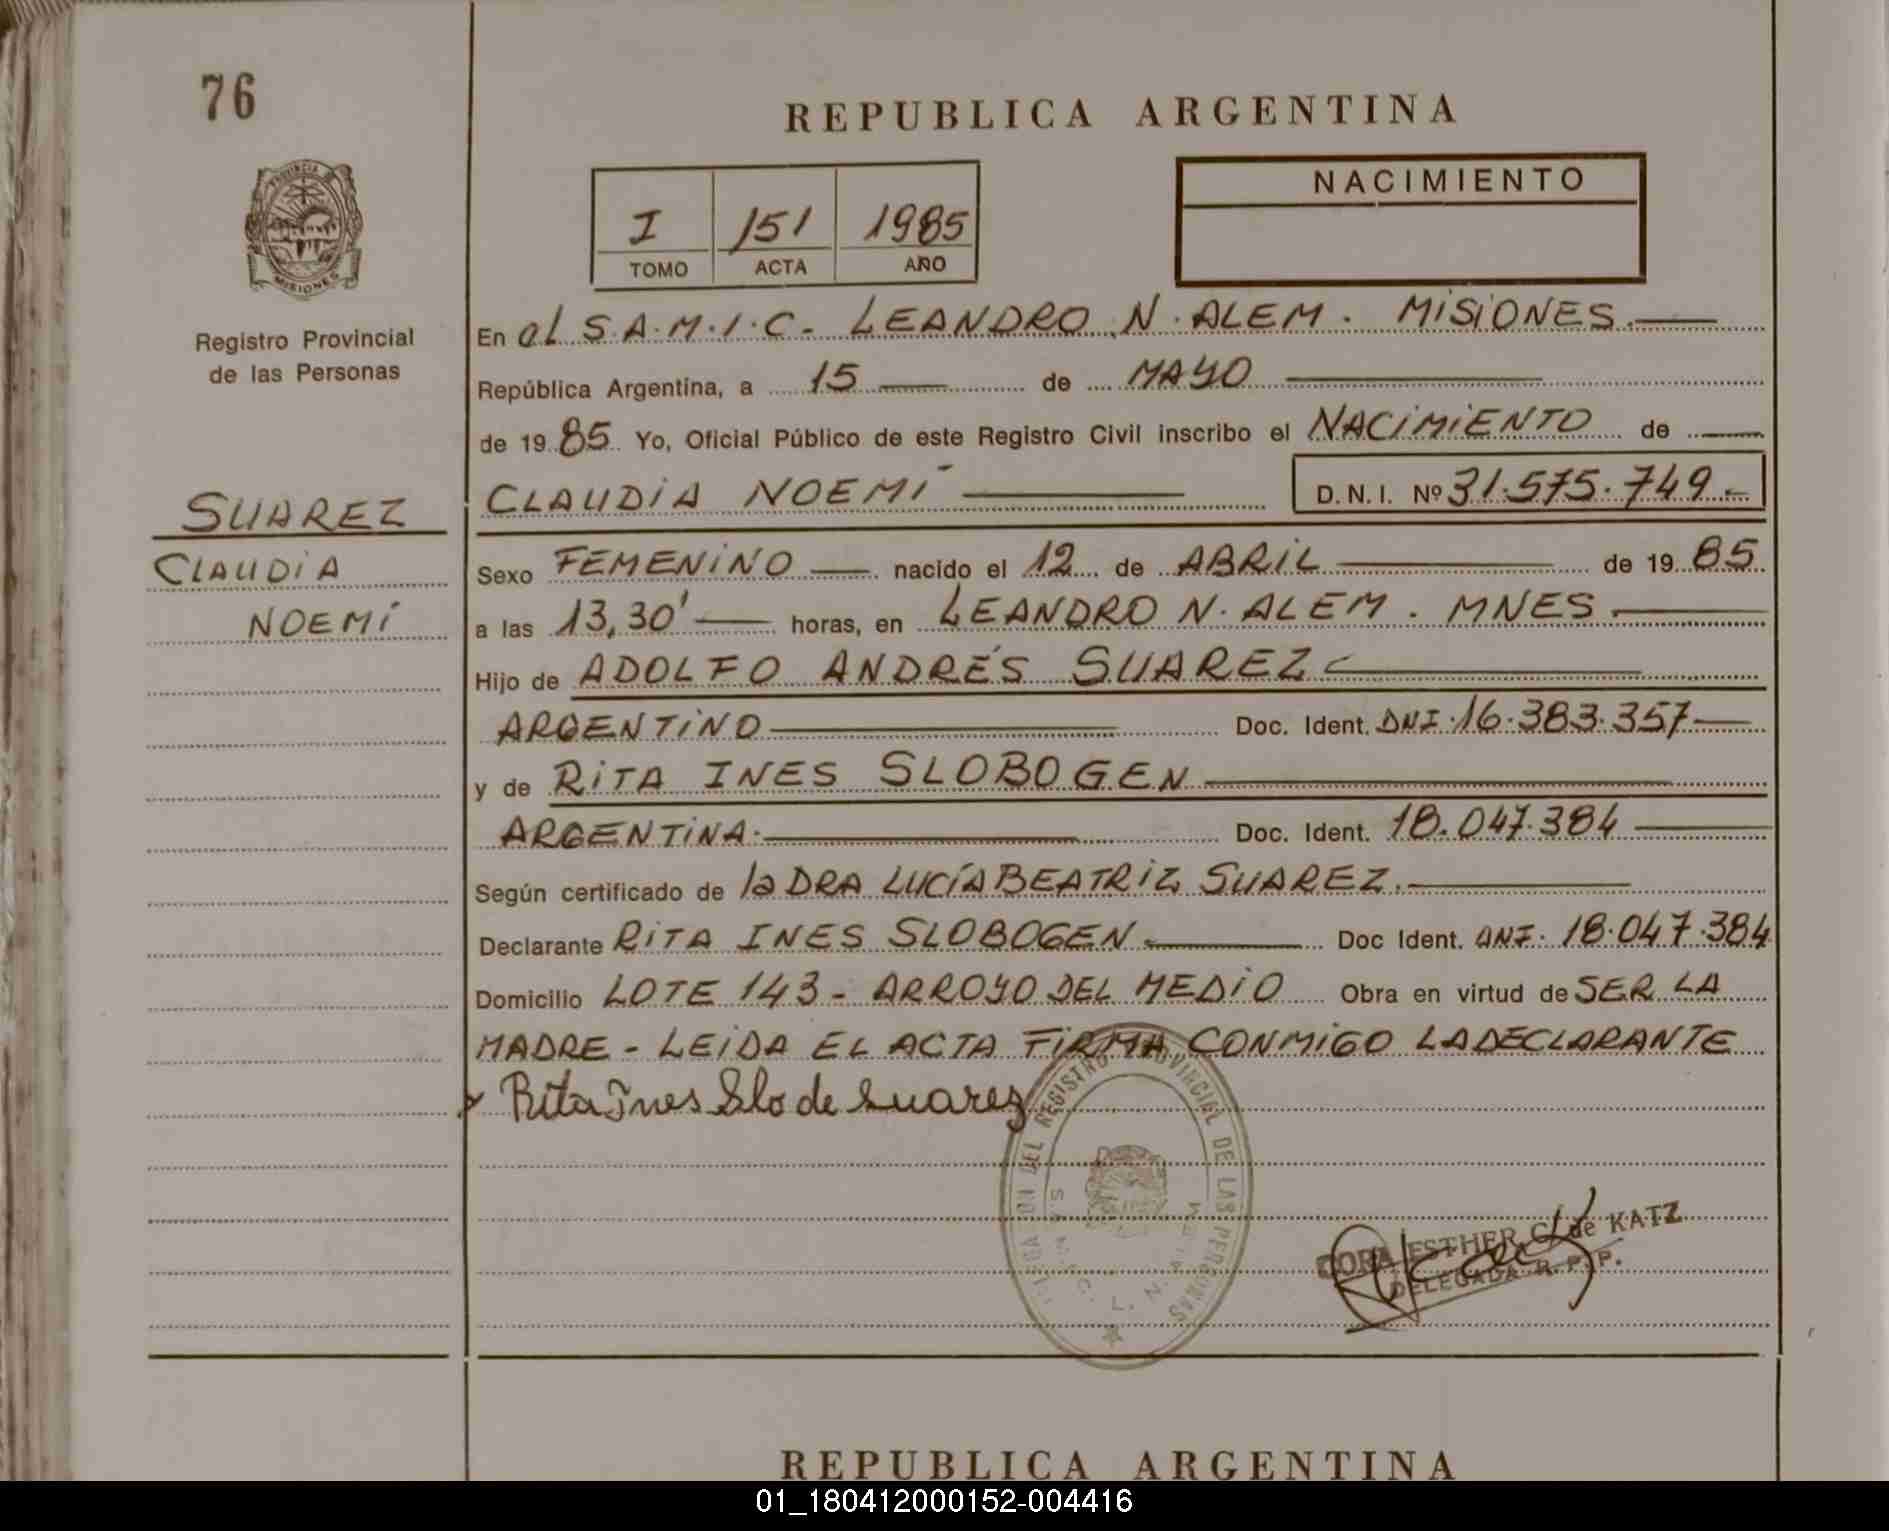 76
REPUBLICA ARGENTINA
PROVINCIA DE
MISIONES
NACIMIENTO
I 151 1985
TOMO ACTA AÑO
Registro Provincial
de las Personas
En el S.A.M.I.C. LEANDRO N. ALEM. MISIONES.
República Argentina, a 15 de MAYO
de 19 85 Yo, Oficial Público de este Registro Civil inscribo el NACIMIENTO de
CLAUDIA NOEMÍ D.N.I. Nº 31.575.749.-
SUAREZ
CLAUDIA
NOEMÍ
Sexo FEMENINO nacido el 12 de ABRIL de 19 85
a las 13,30' horas, en LEANDRO N. ALEM. MNES
Hijo de ADOLFO ANDRÉS SUAREZ
ARGENTINO Doc. Ident. DNI. 16.383.357
y de RITA INES SLOBOGEN
ARGENTINA. Doc. Ident. 18.047.384
Según certificado de la DRA LUCÍA BEATRIZ SUAREZ.
Declarante RITA INES SLOBOGEN Doc Ident. DNI. 18.047.384
Domicilio LOTE 143 - ARROYO DEL MEDIO Obra en virtud de SER LA
MADRE - LEIDA EL ACTA FIRMA CONMIGO LA DECLARANTE
Rita Ines Slo de Suarez
DEL REGISTRO PROVINCIAL DE LAS PERSONAS
S.A.M.I.C. L. N. ALEM
DORA ESTHER G. de KATZ
DELEGADA R. P. P.
REPUBLICA ARGENTINA
01_180412000152-004416